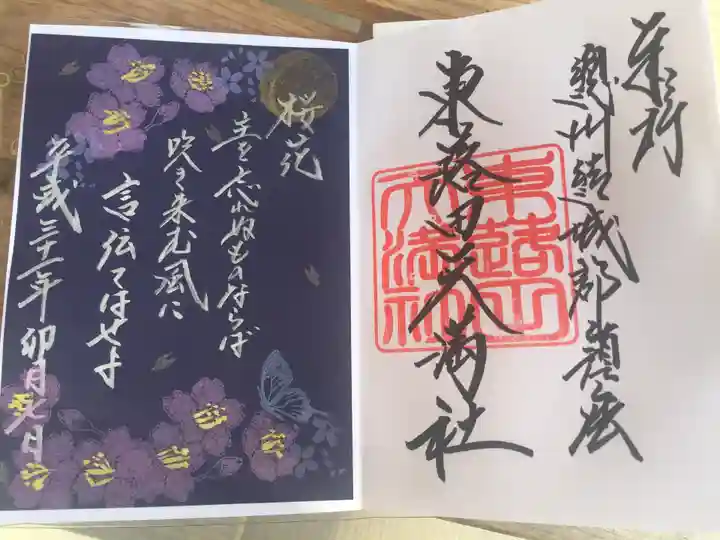 奉拝
總州結城郡鎮座
東蕗田天満社
東蕗田
天満社
桜花
主を忘れぬものならば
吹き来む風に
言伝てはせよ
平成三十一年卯月元日